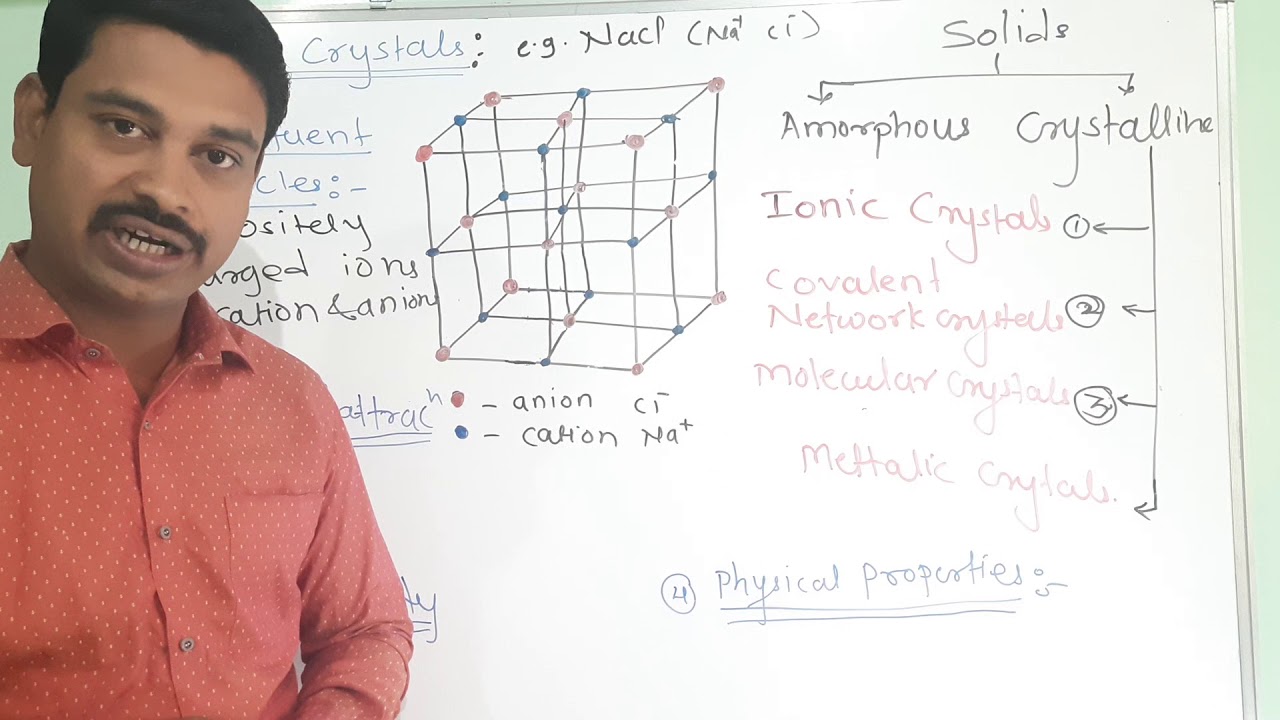 Crystals: e.g. Nacl (Na+ cl-)
ositely
arged ions
cation & anion
attracn
- anion cl-
- cation Na+
Solids
Amorphous Crystalline
Ionic Crystals 1
Covalent
Network crystells 2
Molecular crystals 3
Mettalic Crytals.
4 Physical properties:-